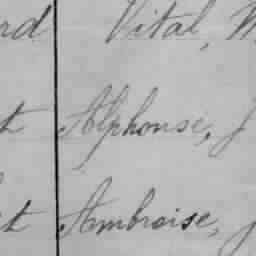 rd Vital, M
t Alphonse, J
t Ambroise, J